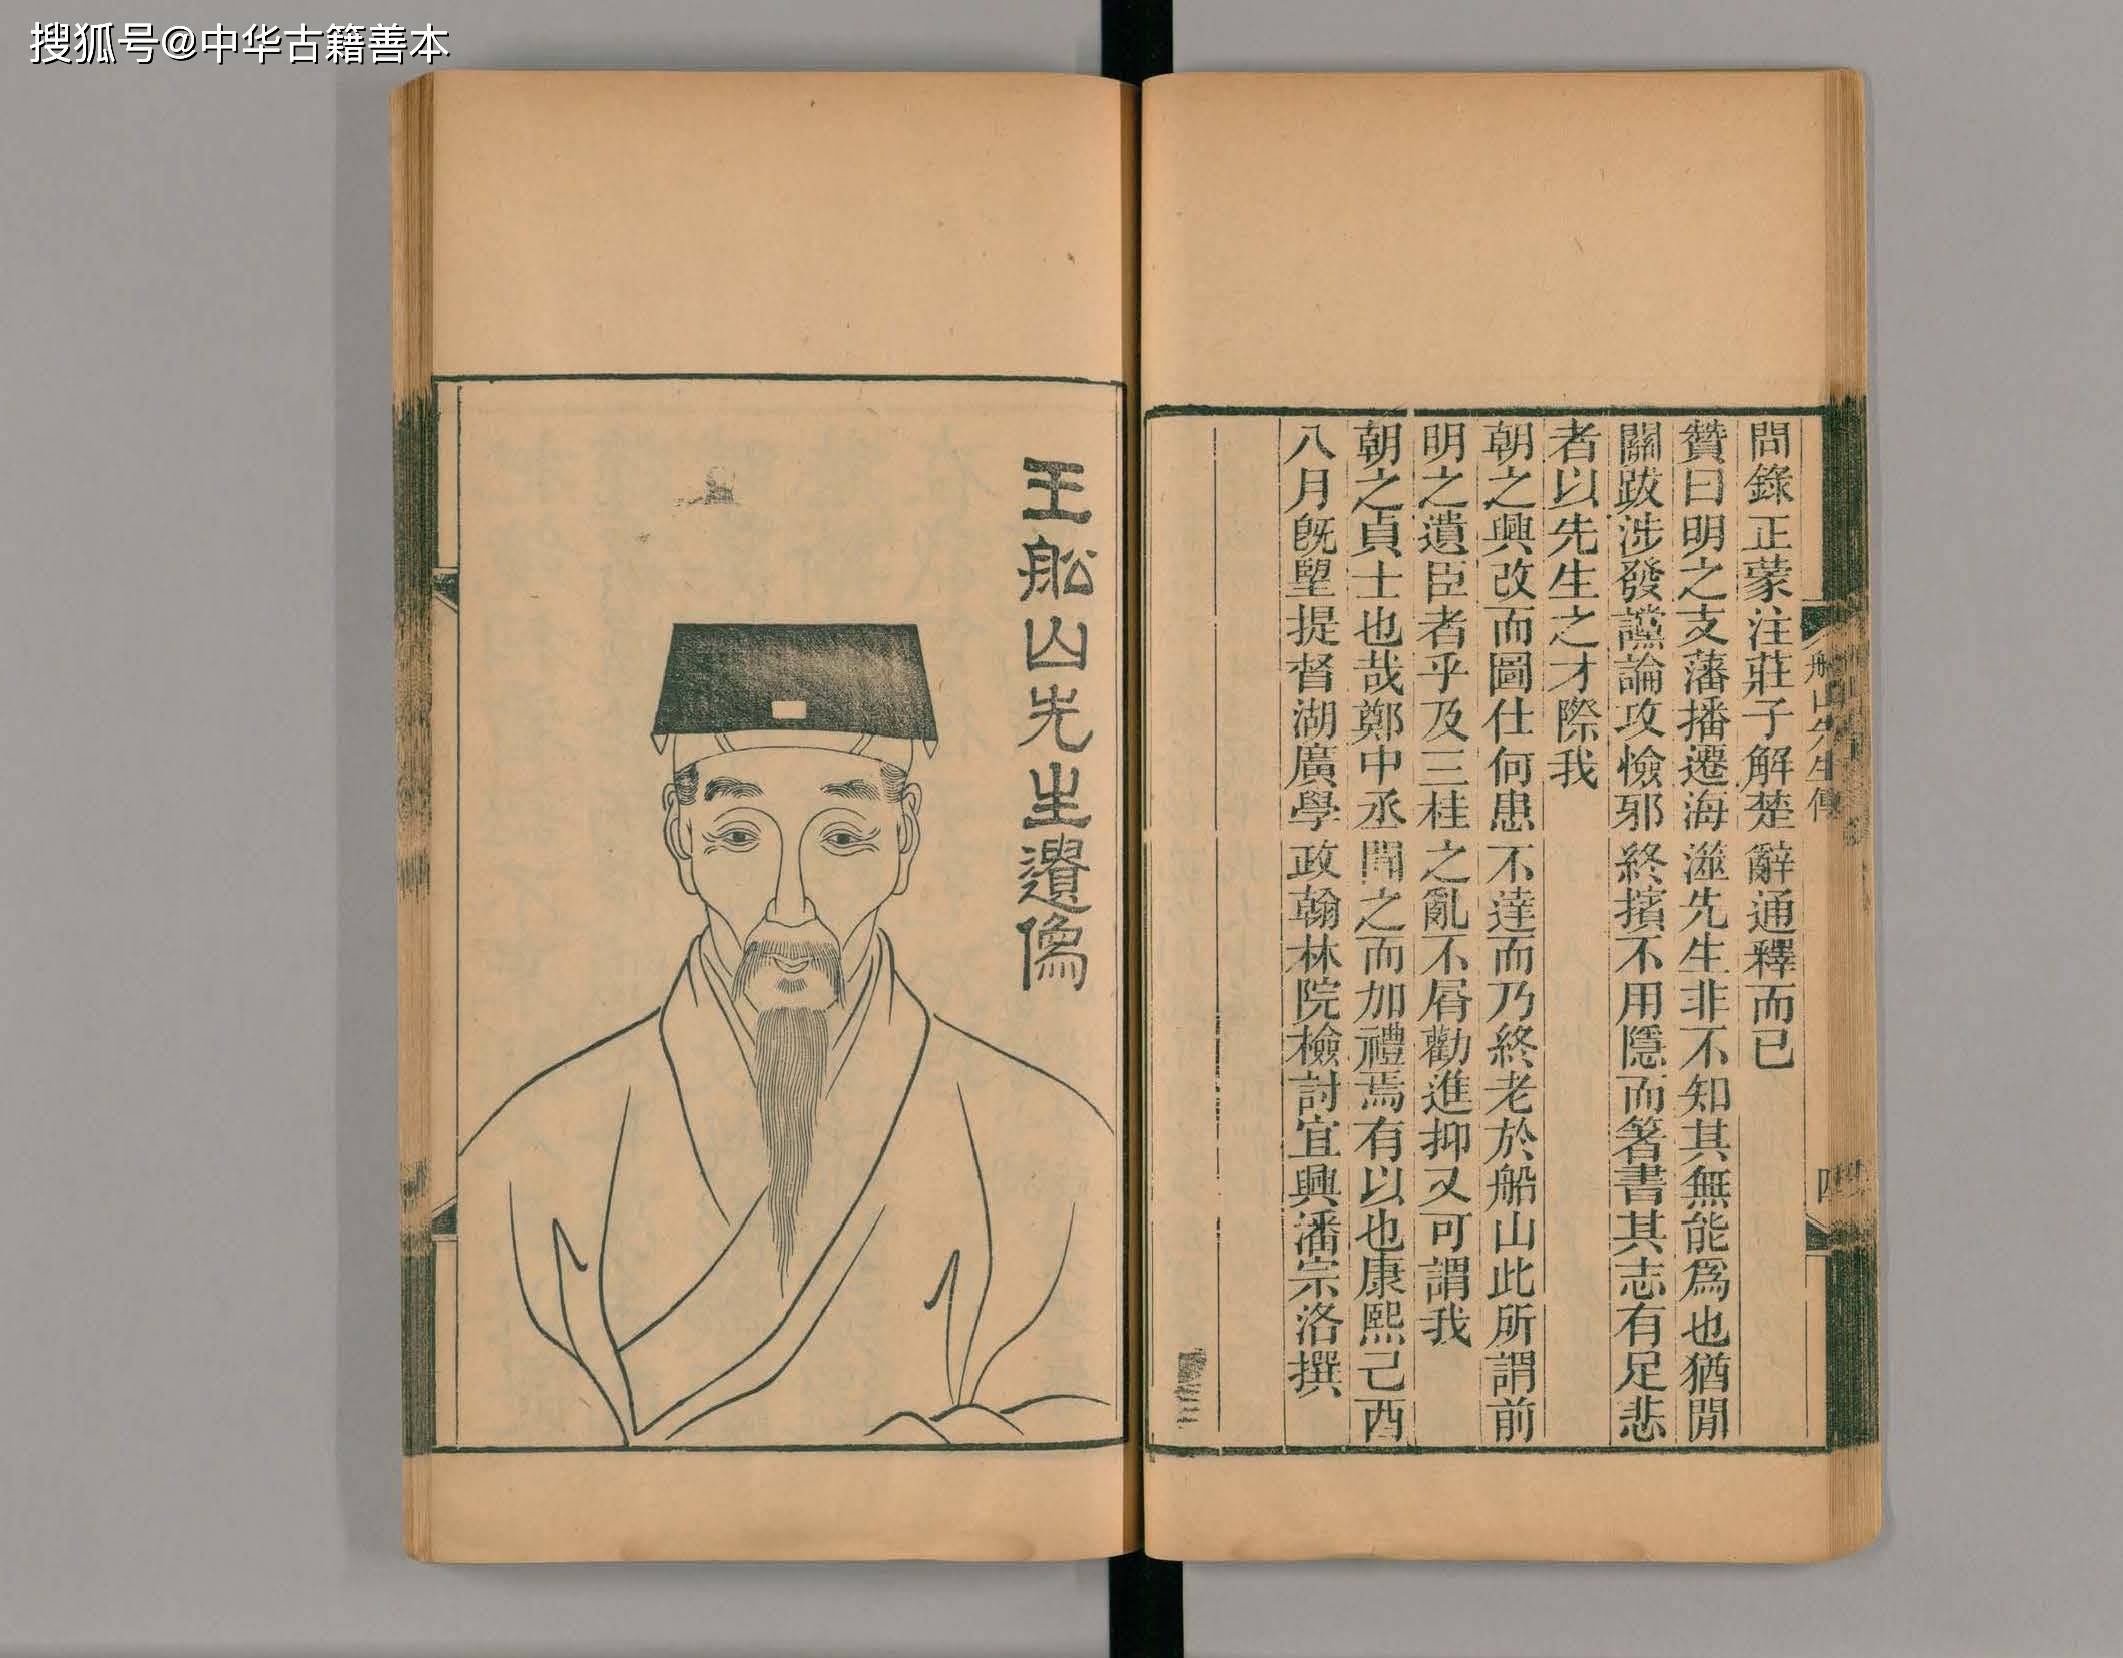 搜狐号@中华古籍善本
問錄正蒙注莊子解楚辭通釋而已
贊曰明之支藩播遷海澨先生非不知其無能爲也猶間
關跋涉發讜論攻憸邪終擯不用隱而著書其志有足悲
者以先生之才際我
朝之興改而圖仕何患不達而乃終老於船山此所謂前
明之遺臣者乎及三桂之亂不屑勸進抑又可謂我
朝之貞士也哉鄭中丞聞之而加禮焉有以也康熙己酉
八月旣朢提督湖廣學政翰林院檢討宜興潘宗洛撰
船山先生傳
四
王船山先生遺像